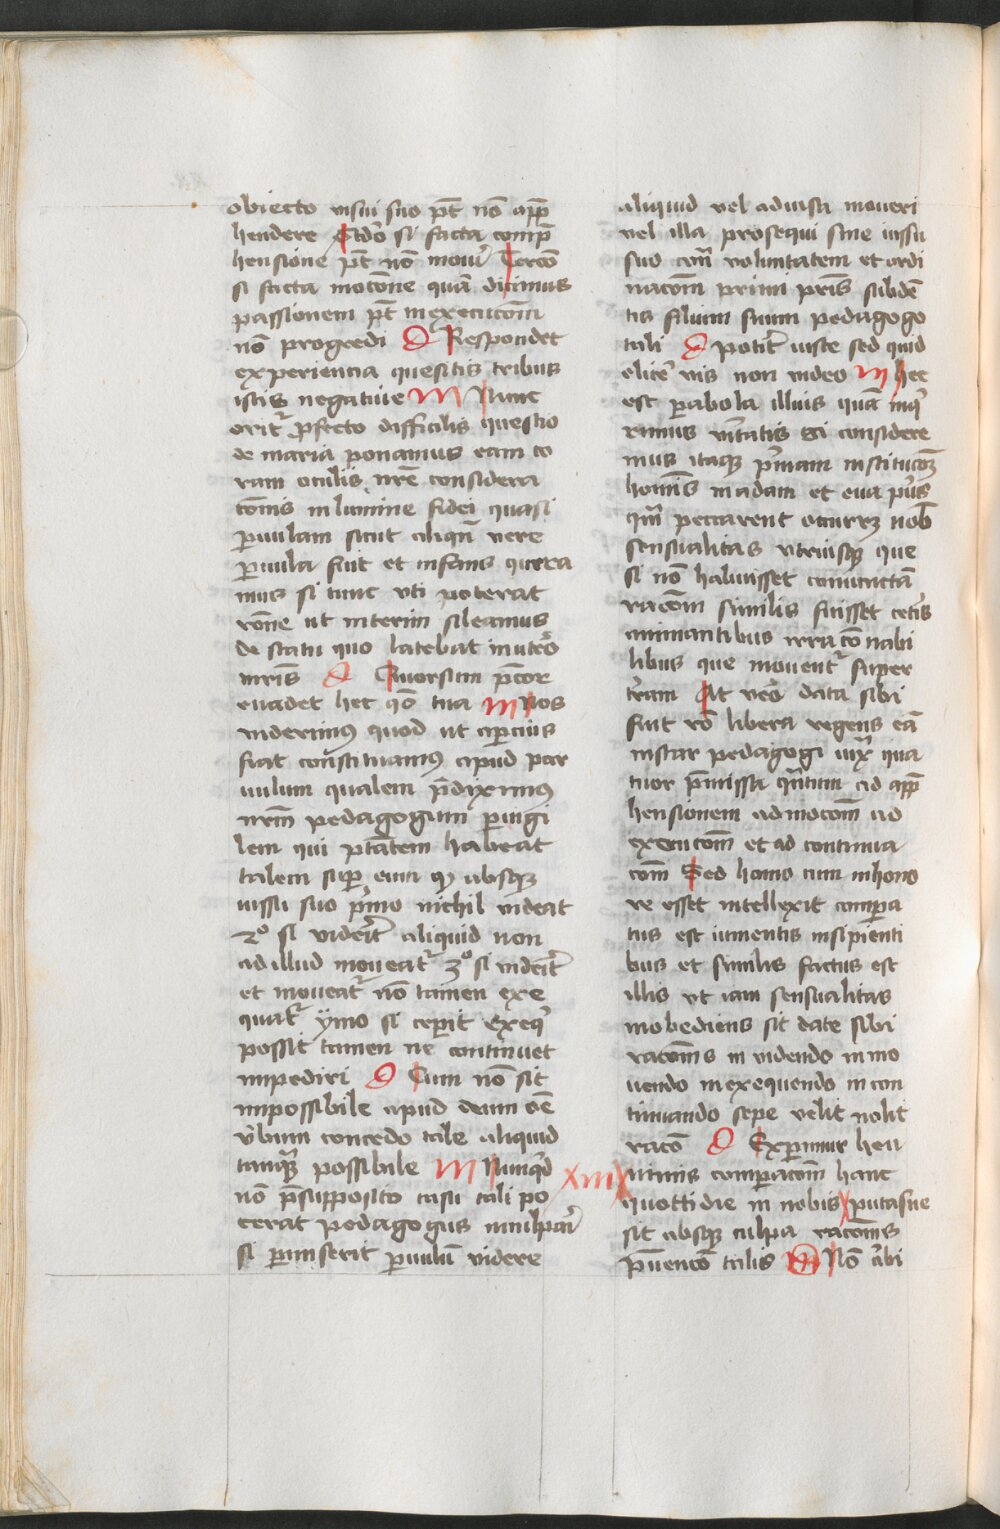 obiecto visui suo pt̄ nō app̄
hendere Scd̄o si facta comp̄
hensione pt̄ nō moueri Tercō
si facta mocōne quā dicimus
passionem pt̄ in execucōm̄
nō progredi D Respondet
experiencia quesitis tribus
istis negatiue M Nunc
orit᷑ profecto difficilis questio
de maria ponamus eam co
ram oculis nr̄e considera
cōnis in lumine fidei quasi
paruulam sicut aliqn̄ vere
paruula fuit et infans quera
mus si tunc vti poterat
rōne ut interim sileamus
de statu quo latebat in utero
mr̄is D Quorsum p̄cor
euadet hec qō tua M Nos
viderimus quod ut apercius
fiat constituamus apud par
uulum qualem p̄diximus
nr̄m pedagogum peruigi
lem qui ptātem habeat
talem super eum qꝫ absqꝫ
iussu suo primo nichil videat
2º si viderit aliquid non
ad illud moueat᷑ 3º si viderit
et moueat᷑ nō tamen exe
quat᷑ ymo si ceperit exequi
possit tamen ne continuet
impediri D Cum nō sit
impossibile apud deum oē
v̄bum concedo tale aliquid
tamqꝫ possibile M Numqd
nō p̄supposito casu tali po
terat pedagogus inculpari
si permiserit paruulū videre
aliquid vel ad visa moueri
vel illa prosequi sine iussu
suo contra voluntatem et ordi
nacōm primi pr̄is subdē
tis filium suum pedagogo
tali D Potuit iuste sed quid
elicere vis non video M hec
est parabola illius quā inq̄
rimus v̄itatis Si considere
mus itaqꝫ primam institucōꝫ
hominis in adam et eua prius
qm̄ peccarent occurrꝫ nob̄
sensualitas vtriusqꝫ que
si nō habuisset coniunctam
racōm similis fuisset ceteris
animantibus irracōnabi
libus que mouent᷑ super
terram At vero data sibi
fuit rō libera regens eā
instar pedagogi iuxta qua
tuor p̄missa quantum ad app̄
hensionem ad mocōm ad
execucōm et ad continua
cōm Sed homo cum in hono
re esset intellexit compara
tus est iumentis insipienti
bus et similis factus est
illis vt iam sensualitas
inobediens sit date sibi
racōnis in videndo in mo
uendo in exequendo in con
tinuando sepe velit nolit
racō D Experimur heu
nimis comparacōm hanc
quottidie in nobis putasne
sit absqꝫ culpa racōnis
p̄uencō talis M Nō arbi